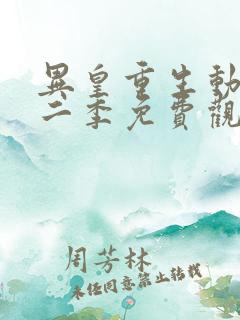 異皇重生動
二季免費觀
周芳林
未经同意禁止转载